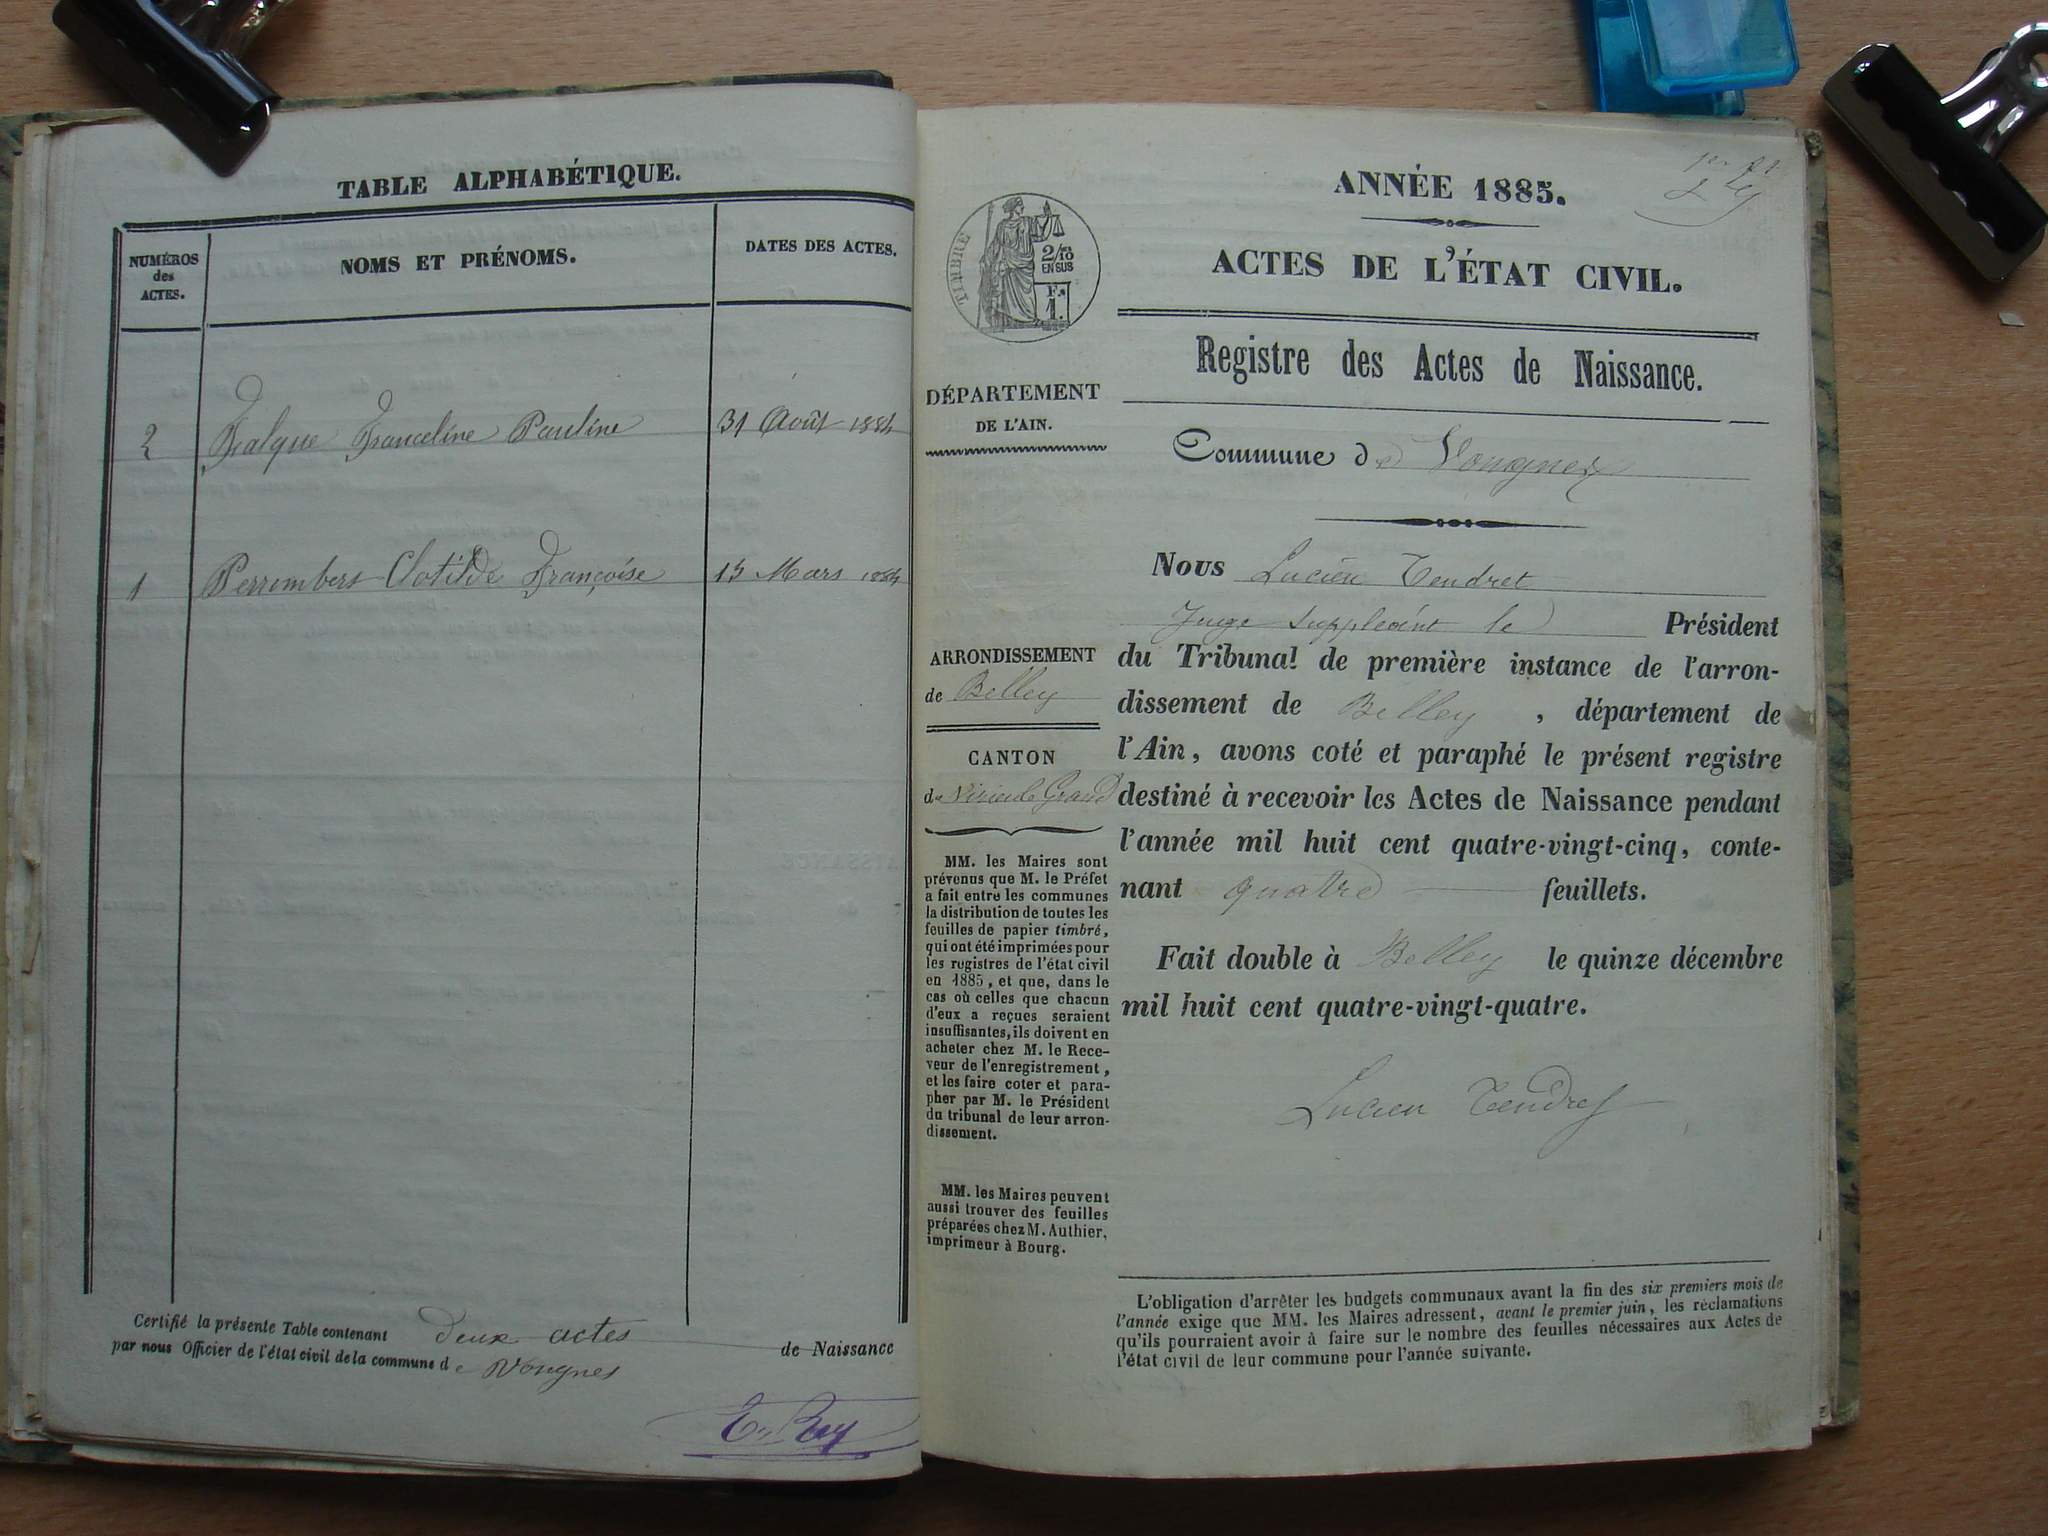 TABLE ALPHABÉTIQUE.
NUMÉROS
des
ACTES.
NOMS ET PRÉNOMS.
DATES DES ACTES.
2 Falque Franceline Pauline 31 Août 1884
1 Perrombert Clotilde Françoise 15 Mars 1884
Certifié la présente Table contenant deux actes de Naissance
par nous Officier de l'état civil de la commune de Vongnes
E. Rey
1er
ANNÉE 1885.
ACTES DE L'ÉTAT CIVIL.
TIMBRE
2/10
EN SUS
Fc
1.
Registre des Actes de Naissance.
DÉPARTEMENT
DE L'AIN.
Commune de Vongnes
Nous Lucien Tendret
Juge Suppléant le Président
du Tribunal de première instance de l'arron-
dissement de Belley, département de
l'Ain, avons coté et paraphé le présent registre
destiné à recevoir les Actes de Naissance pendant
l'année mil huit cent quatre-vingt-cinq, conte-
nant quatre feuillets.
Fait double à Belley le quinze décembre
mil huit cent quatre-vingt-quatre.
Lucien Tendret
ARRONDISSEMENT
de Belley
CANTON
de Virieu le Grand
MM. les Maires sont
prévenus que M. le Préfet
a fait entre les communes
la distribution de toutes les
feuilles de papier timbré,
qui ont été imprimées pour
les registres de l'état civil
en 1885, et que, dans le
cas où celles que chacun
d'eux a reçues seraient
insuffisantes, ils doivent en
acheter chez M. le Rece-
veur de l'enregistrement,
et les faire coter et para-
pher par M. le Président
du tribunal de leur arron-
dissement.
MM. les Maires peuvent
aussi trouver des feuilles
préparées chez M. Authier,
imprimeur à Bourg.
L'obligation d'arrêter les budgets communaux avant la fin des six premiers mois de
l'année exige que MM. les Maires adressent, avant le premier juin, les réclamations
qu'ils pourraient avoir à faire sur le nombre des feuilles nécessaires aux Actes de
l'état civil de leur commune pour l'année suivante.